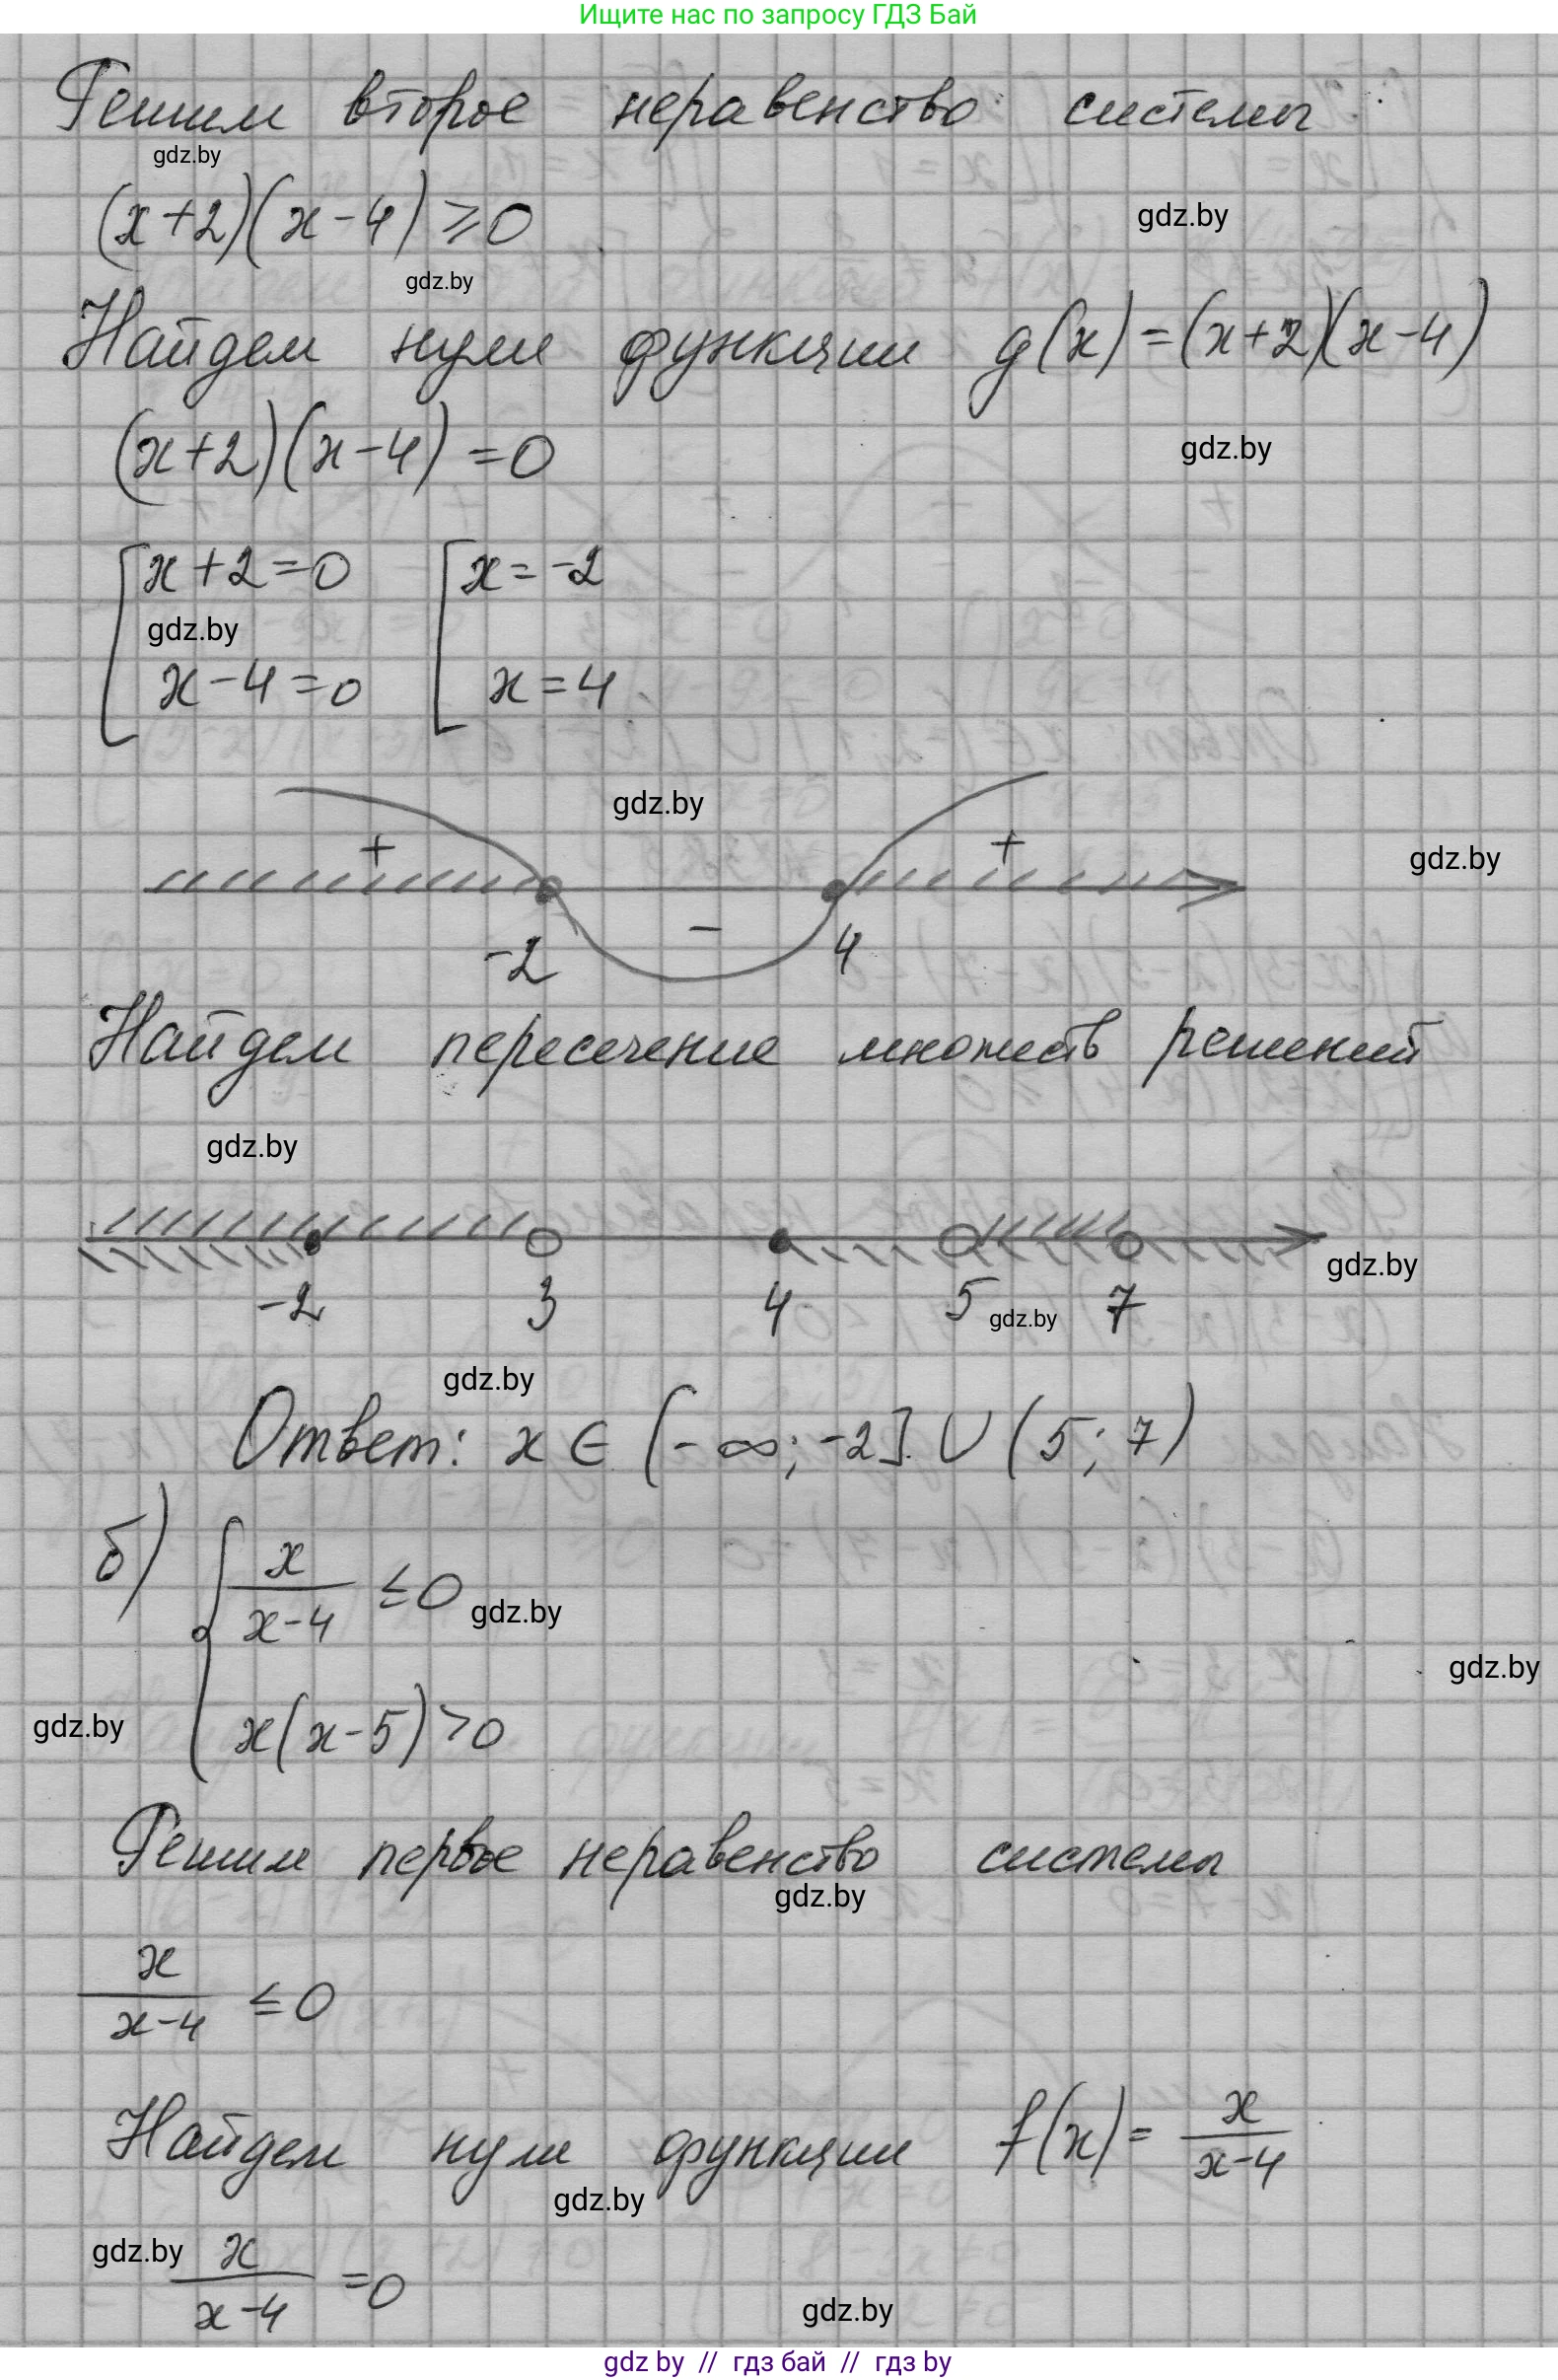 Ищите нас по запросу ГДЗ Бай
Решим второе неравенство системы:
gdz.by
(x+2)(x-4) ≥0
gdz.by
gdz.by
Найдем нули функции g(x)=(x+2)(x-4)
(x+2)(x-4)=0
gdz.by
[x+2=0 [x=-2
gdz.by
x-4=0 x=4
gdz.by
+ +
gdz.by
-2 − 4
Найдем пересечение множеств решений
gdz.by
gdz.by
-2 3 4 5 7
gdz.by
gdz.by
Ответ: x ∈ (-∞; -2] ∪ (5; 7)
б) { x/(x-4) ≤0
gdz.by
gdz.by
x(x-5)>0
gdz.by
Решим первое неравенство системы
gdz.by
x/(x-4) ≤0
Найдем нули функции f(x)= x/(x-4)
gdz.by
gdz.by
x/(x-4) =0
gdz.by
gdz by // гдз бай // гдз by